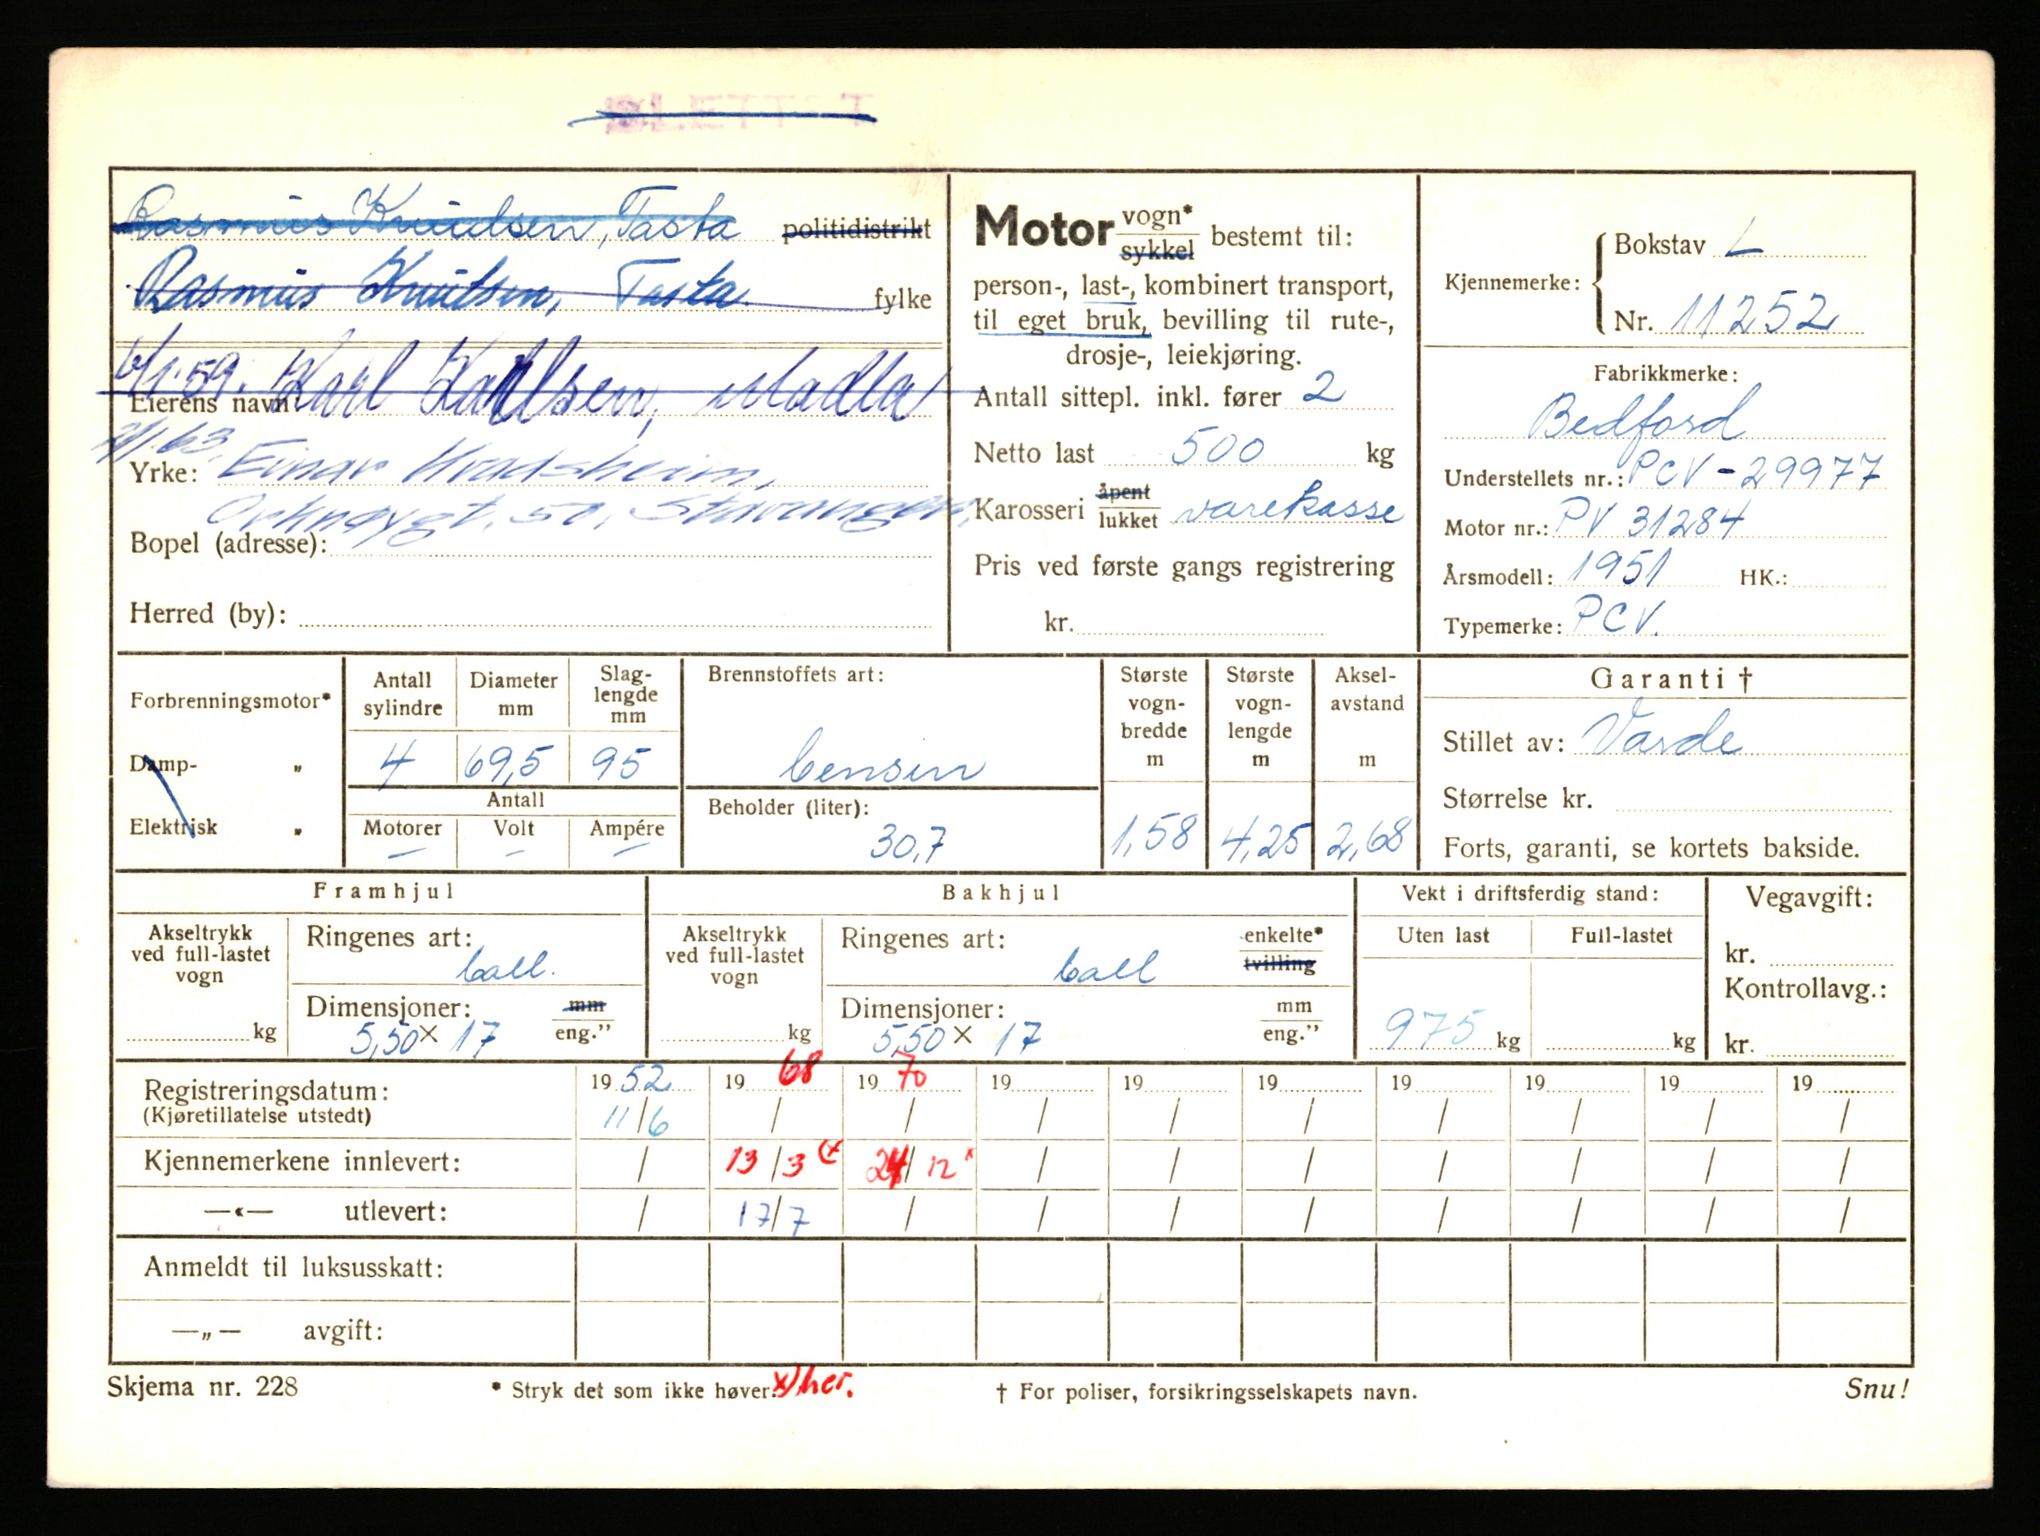 Rasmus Knudsen, Tasta politidistrikt
Rasmus Knutsen, Tasta fylke
6/1.59. Karl Karlsen, Madla
Eierens navn:
Yrke: Einar
50, Stavanger,
Bopel (adresse):
Herred (by):
Motor vogn* sykkel bestemt til:
person-, last-, kombinert transport,
til eget bruk, bevilling til rute-,
drosje-, leiekjøring.
Antall sittepl. inkl. fører 2
Netto last 500 kg
Karosseri åpent lukket varekasse
Pris ved første gangs registrering
kr.
Kjennemerke: Bokstav L
Nr. 11252
Fabrikkmerke:
Bedford
Understellets nr.: PCV-29977
Motor nr.: PV 31284
Årsmodell: 1951 HK.:
Typemerke: PCV.
Forbrenningsmotor*
Damp- „
Elektrisk „
Antall sylindre Diameter mm Slag-lengde mm
4 69,5 95
Antall
Motorer Volt Ampére
– – –
Brennstoffets art:
bensin
Beholder (liter):
30,7
Største vogn-bredde m
1,58
Største vogn-lengde m
4,25
Aksel-avstand m
2,68
Garanti †
Stillet av: Varde
Størrelse kr.
Forts, garanti, se kortets bakside.
Framhjul
Akseltrykk
ved full-lastet
vogn
kg
Ringenes art:
ball.
Dimensjoner: mm
5,50 x 17 eng.”
Bakhjul
Akseltrykk
ved full-lastet
vogn
kg
Ringenes art: enkelte*
ball tvilling
Dimensjoner: mm
5,50 x 17 eng.”
Vekt i driftsferdig stand:
Uten last Full-lastet
975 kg kg
Vegavgift:
kr.
Kontrollavg.:
kr.
Registreringsdatum: 1952 1968 1970 19 19 19 19 19 19 19
(Kjøretillatelse utstedt) 11/6 / / / / / / / / /
Kjennemerkene innlevert: / 13/3 x 24/12 x / / / / / / /
—«— utlevert: / 17/7 / / / / / / / /
Anmeldt til luksusskatt:
—„— avgift:
Skjema nr. 228 * Stryk det som ikke høver. x) her. † For poliser, forsikringsselskapets navn. Snu!